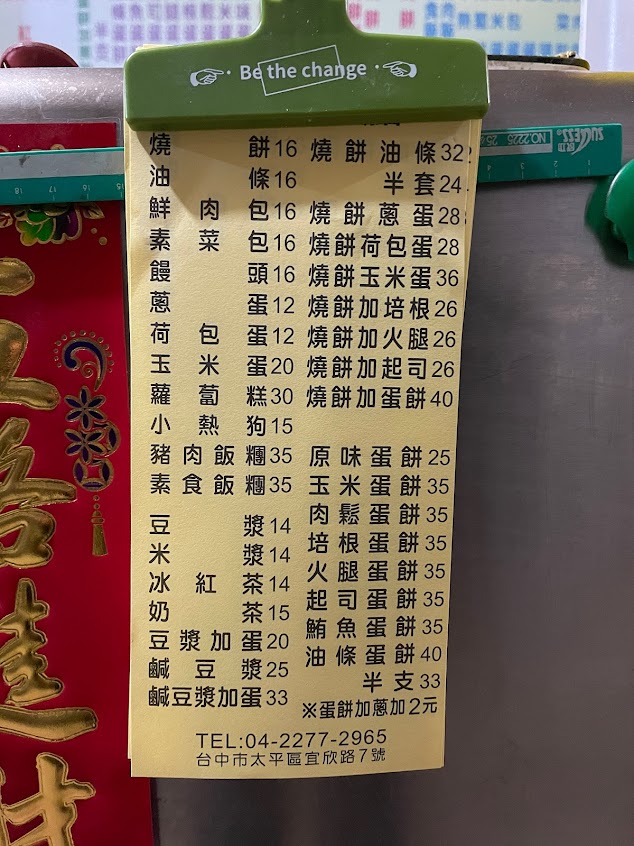 Be the change
燒餅16
油條16
鮮肉包16
素菜包16
饅頭16
蔥蛋12
荷包蛋12
玉米蛋20
蘿蔔糕30
小熱狗15
豬肉飯糰35
素食飯糰35
豆漿14
米漿14
冰紅茶14
奶茶15
豆漿加蛋20
鹹豆漿25
鹹豆漿加蛋33
燒餅油條32
半套24
燒餅蔥蛋28
燒餅荷包蛋28
燒餅玉米蛋36
燒餅加培根26
燒餅加火腿26
燒餅加起司26
燒餅加蛋餅40
原味蛋餅25
玉米蛋餅35
肉鬆蛋餅35
培根蛋餅35
火腿蛋餅35
起司蛋餅35
鮪魚蛋餅35
油條蛋餅40
半支33
※蛋餅加蔥加2元
TEL:04-2277-2965
台中市太平區宜欣路7號
SUCCESS
NO.2225